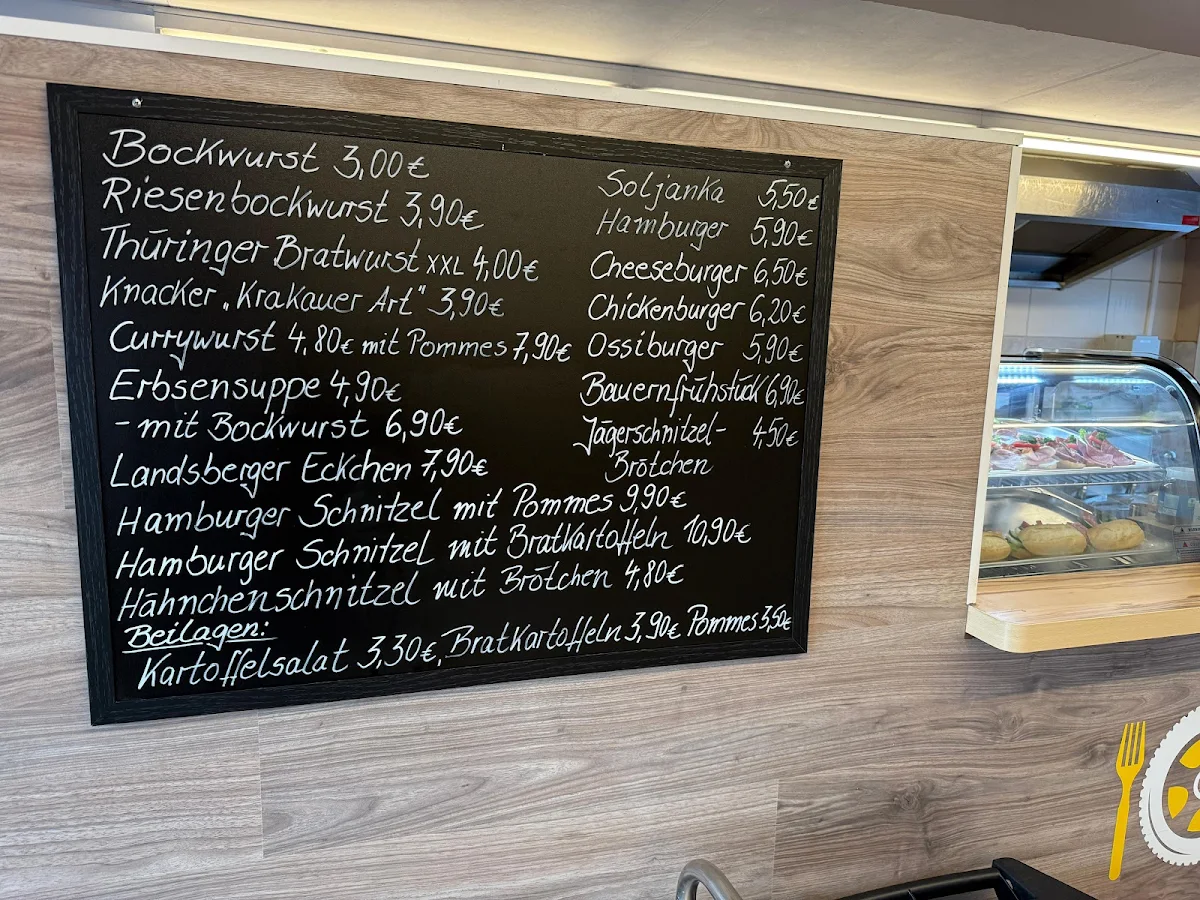 Bockwurst 3,00€
Riesenbockwurst 3,90€
Thüringer Bratwurst XXL 4,00€
Knacker „Krakauer Art" 3,90€
Currywurst 4,80€ mit Pommes 7,90€
Erbsensuppe 4,90€
- mit Bockwurst 6,90€
Landsberger Eckchen 7,90€
Hamburger Schnitzel mit Pommes 9,90€
Hamburger Schnitzel mit Bratkartoffeln 10,90€
Hähnchenschnitzel mit Brötchen 4,80€
Beilagen:
Kartoffelsalat 3,30€, Bratkartoffeln 3,90€ Pommes 3,50€
Soljanka 5,50€
Hamburger 5,90€
Cheeseburger 6,50€
Chickenburger 6,20€
Ossiburger 5,90€
Bauernfrühstück 6,90€
Jägerschnitzel- 4,50€
Brötchen